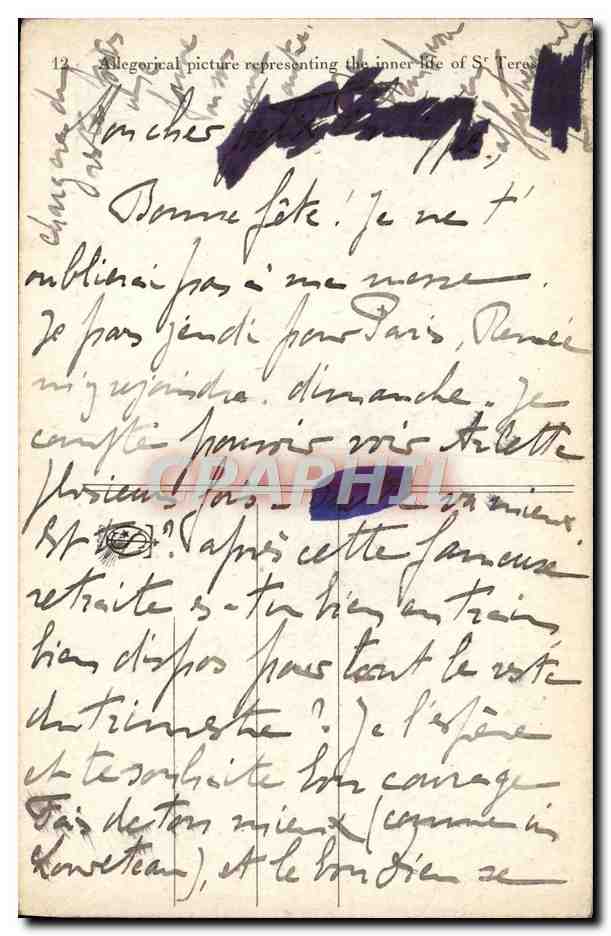 12 Allegorical picture representing the inner life of Sr Teres
Mon cher petit
Bonne fête ! Je ne t'
oublierai pas à ma messe.
Je pars jeudi pour Paris, Renée
m'y rejoindra dimanche. Je
compte pouvoir voir Arlette
plusieurs fois - va mieux
Et toi ? après cette fameuse
retraite es-tu bien en train,
bien dispos pour tout le reste
du trimestre ? Je l'espère
et te souhaite bon courage
Fais de ton mieux (comme un
Louveteau), et le bon Dieu se
chargera du
reste
affectueusement
CPARAMA